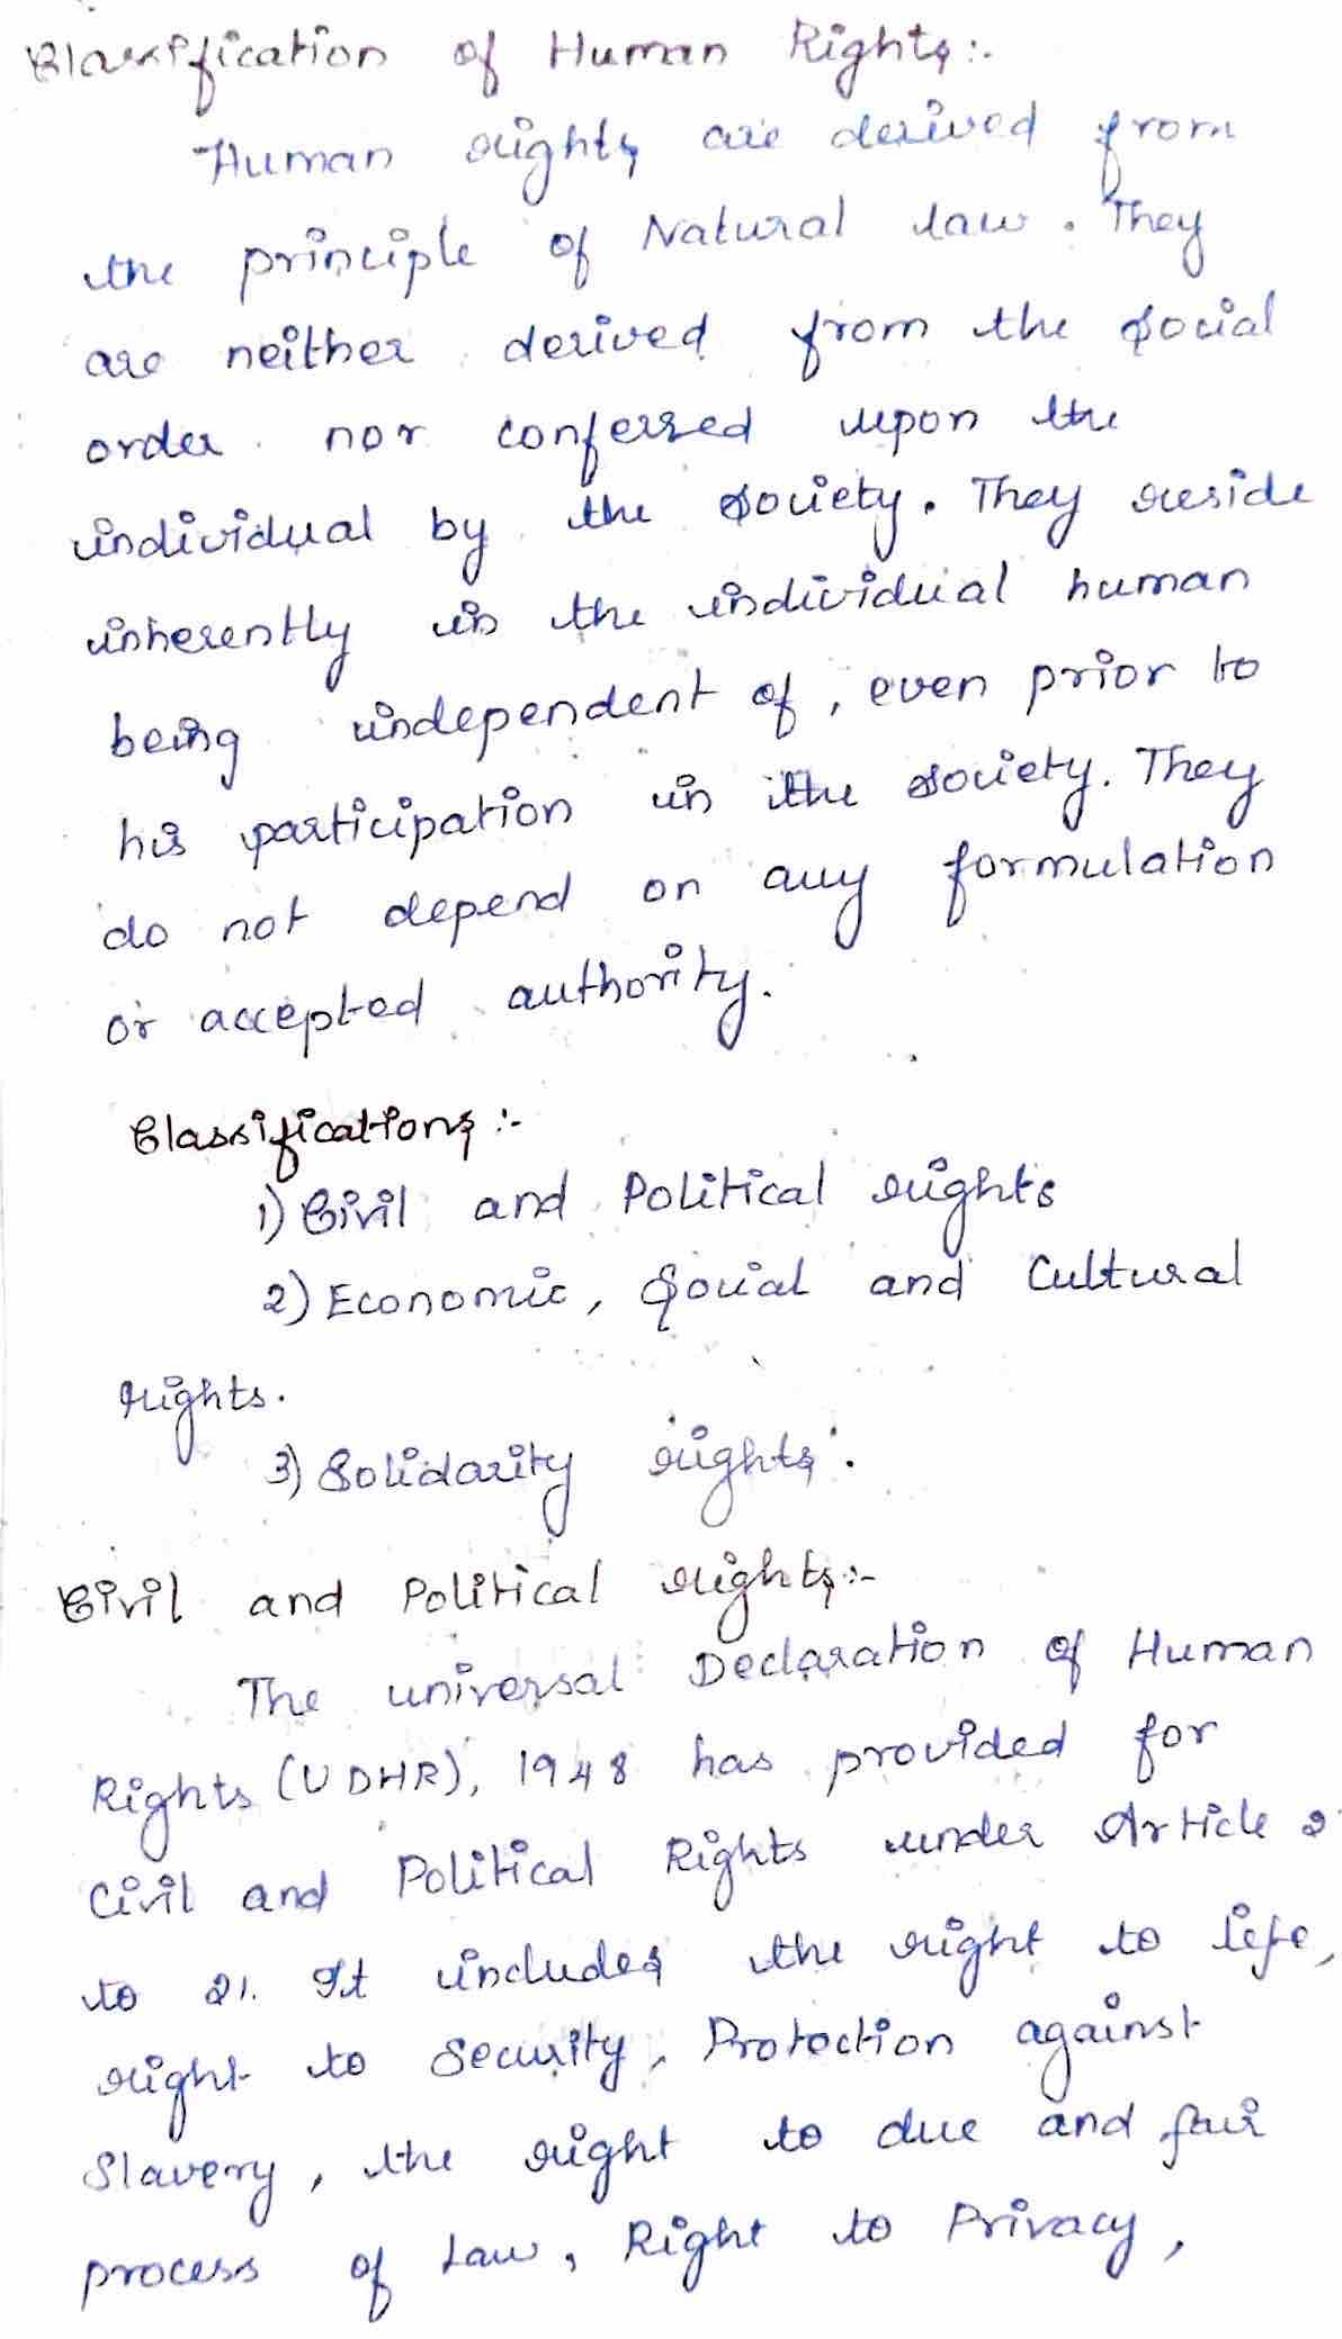 Classification of Human Rights:-
Human rights are derived from
the principle of Natural law. They
are neither derived from the social
order nor conferred upon the
individual by the society. They reside
inherently in the individual human
being independent of, even prior to
his participation in the society. They
do not depend on any formulation
or accepted authority.
Classifications:-
1) Civil and Political rights
2) Economic, Social and Cultural
rights.
3) Solidarity rights.
Civil and Political rights:-
The universal Declaration of Human
Rights (UDHR), 1948 has provided for
Civil and Political Rights under Article 2
to 21. It includes the right to life,
right to Security, Protection against
Slavery, the right to due and fair
process of Law, Right to Privacy,